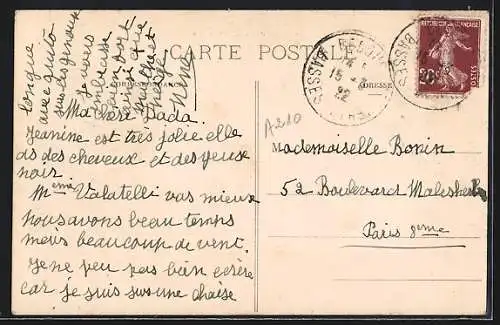 CARTE POSTALE
CORRESPONDANCE
ADRESSE
Ma chère Dada.
Jeanine est très jolie elle
as des cheveux et des yeux
noir
Mme Valatelli vas mieux
nous avons beau temps
mais beaucoup de vent.
Je ne peu pas bien ecrire
car je suis sus une chaise
longue
avec quito
sur les genoux
je vous
embrasse
bien fort
ainsi que
Nene
BASSES
22
BASSES
20c
POSTES
A210
Mademoiselle Bonin
52 Boulevard Malesherb
Paris 8eme